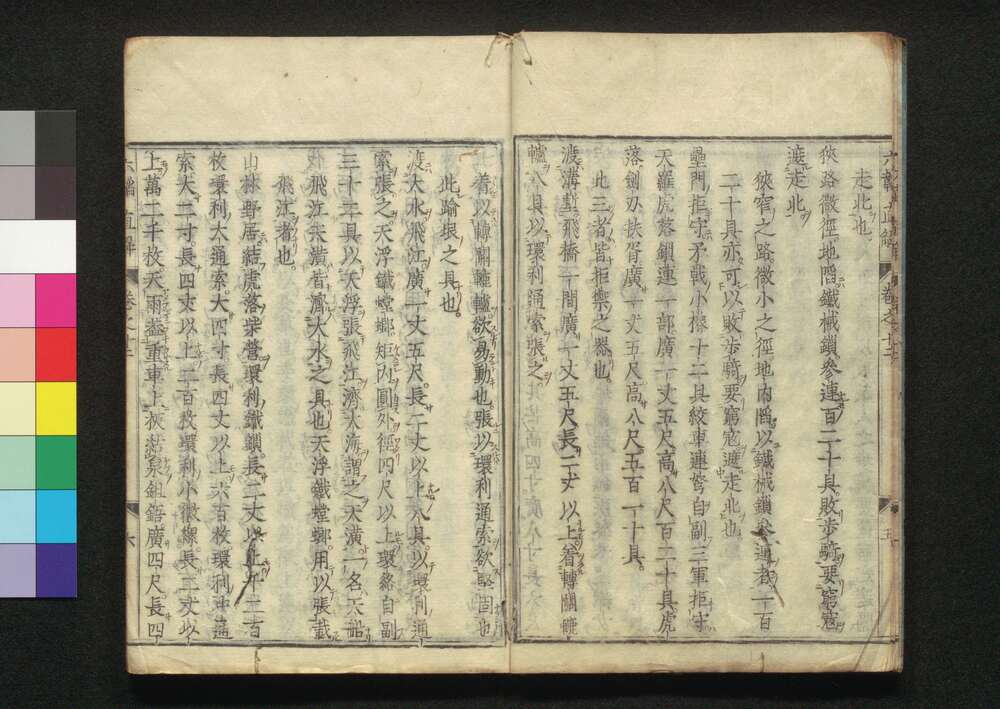 走北也
狹路微徑地䧟鐵械鎖參連百二十具敗歩騎要窮寇
遮走北
狹窄之路微小之徑地内䧟以鐵械鎖參連者一百
二十具亦可以敗歩騎要窮寇遮走北也
壘門拒守矛戟小櫓十二具絞車連弩自副三軍拒守
天羅虎落鎖連一部廣一丈五尺高八尺百二十具虎
落劍刃扶胥廣一丈五尺高八尺五百一十具
此三者皆拒禦之器也
渡溝塹飛橋一間廣一丈五尺長二丈以上着轉關轆
轤八具以環利通索張之
六韜直解
卷之十二
五
着以轉關轆轤欲易動也張以環利通索欲堅固也
此踰垠之具也
渡大水飛江廣一丈五尺長二丈以上八具以環利通
索張之天浮鐵螳螂矩内圓外徑四尺以上環絡自副
三十二具以天浮張飛江濟大海謂之天潢一名天船
飛江天潢皆濟大水之具也天浮鐵螳螂用以張載
飛江者也
山林野居結虎落柴營環利鐵鎖長二丈以上千二百
枚環利大通索大四寸長四丈以上六百枚環利中通
索大二寸長四丈以上二百枚環利小徽縲長二丈以
上萬二千枚天雨蓋重車上板結枲鉏鋙廣四尺長四
六韜直解
卷之十二
六